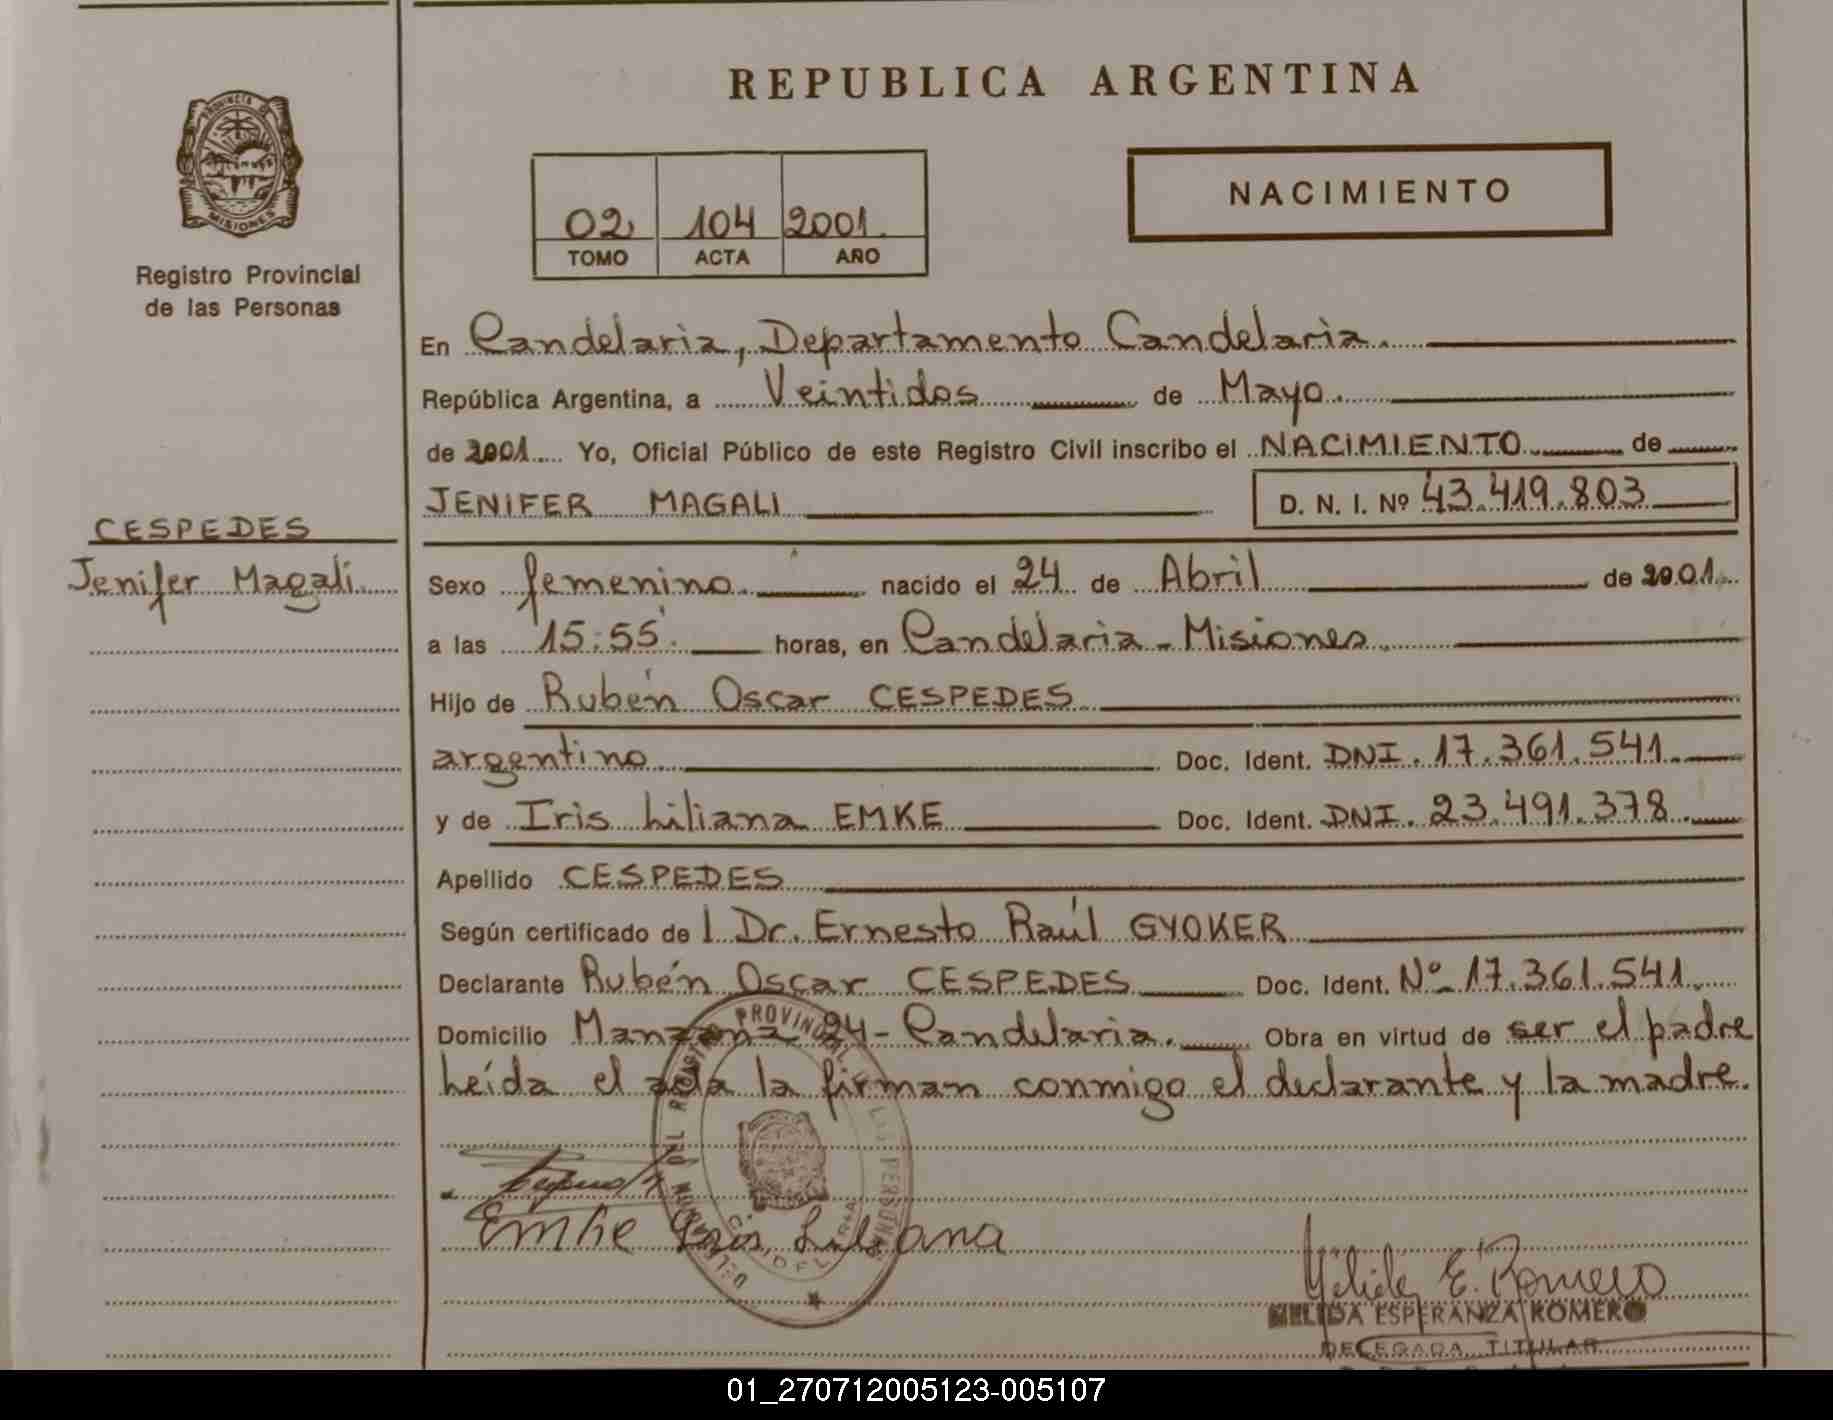 REPUBLICA ARGENTINA
PROVINCIA DE
MISIONES
Registro Provincial
de las Personas
02 104 2001
TOMO ACTA AÑO
NACIMIENTO
En Candelaria, Departamento Candelaria.
República Argentina, a Veintidos de Mayo.
de 2001 Yo, Oficial Público de este Registro Civil inscribo el NACIMIENTO de
JENIFER MAGALI D. N. I. Nº 43.419.803
CESPEDES
Jenifer Magalí.
Sexo femenino. nacido el 24 de Abril de 2001.
a las 15:55. horas, en Candelaria - Misiones.
Hijo de Rubén Oscar CESPEDES
argentino. Doc. Ident. DNI. 17.361.541.
y de Iris Liliana EMKE Doc. Ident. DNI. 23.491.378.
Apellido CESPEDES
Según certificado de l Dr. Ernesto Raúl GYOKER
Declarante Rubén Oscar CESPEDES Doc. Ident. Nº 17.361.541.
Domicilio Manzana 24 - Candelaria. Obra en virtud de ser el padre
Leída el acta la firman conmigo el declarante y la madre.
Emke Iris Liliana
Nélida E. Romero
NELIDA ESPERANZA ROMERO
DELEGADA TITULAR
01_270712005123-005107